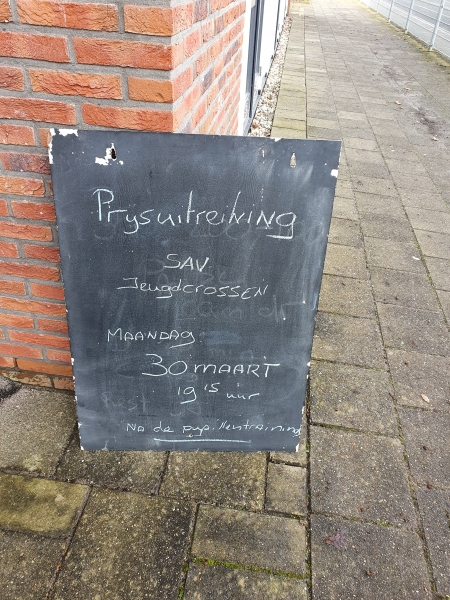 Prijsuitreiking
SAV
Jeugdcrossen
MAANDAG
30 MAART
19 15 uur
Na de pupillentraining